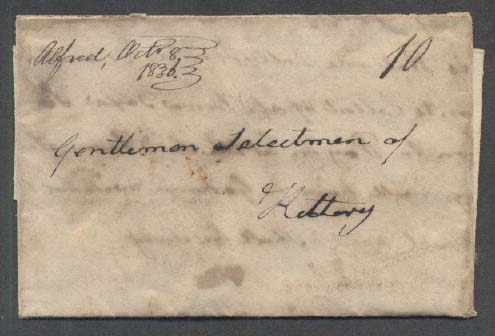 Alfred, Octr 8
1836
10
Gentlemen Selectmen of
Kittery